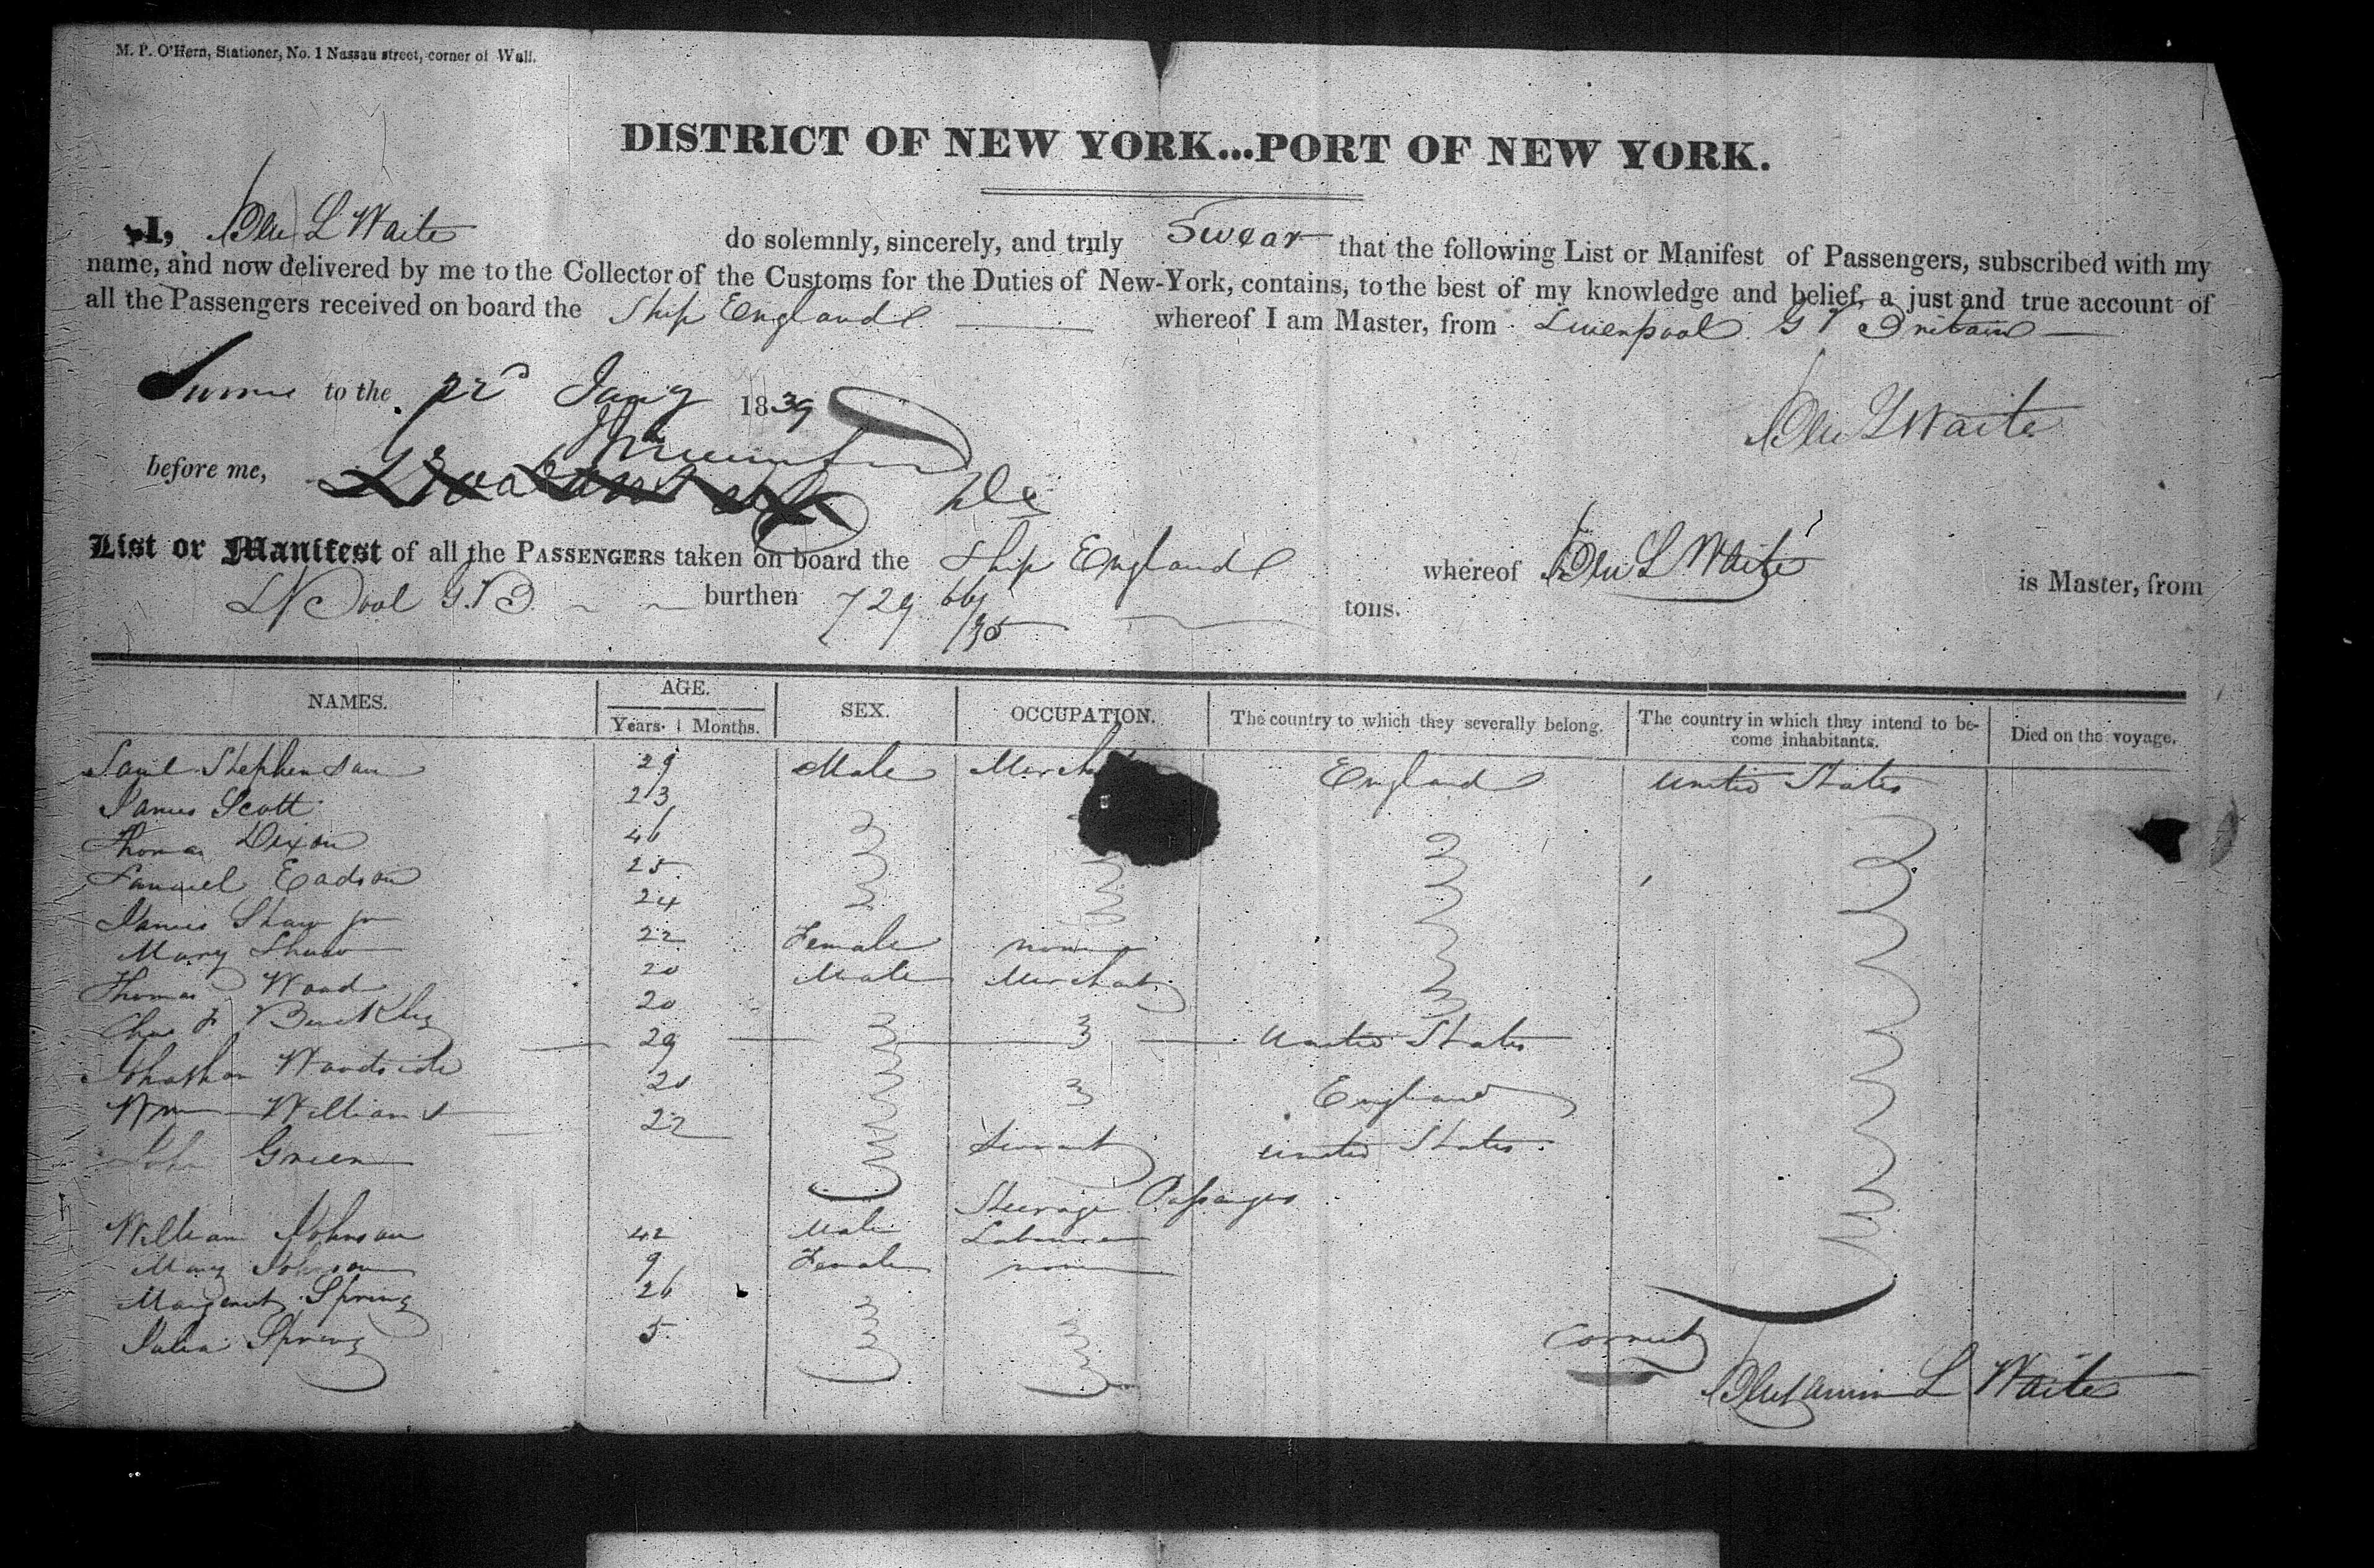 M. P. O'Hern, Stationer, No. 1 Nassau street, corner of Wall.
DISTRICT OF NEW YORK...PORT OF NEW YORK.
I, Ben L Waite do solemnly, sincerely, and truly Swear that the following List or Manifest of Passengers, subscribed with my
name, and now delivered by me to the Collector of the Customs for the Duties of New-York, contains, to the best of my knowledge and belief, a just and true account of
all the Passengers received on board the Ship England whereof I am Master, from Liverpool Gt Britain
to the 22d Jany 1839
Ben L Waite
before me,
List or Manifest of all the PASSENGERS taken on board the Ship England whereof Ben L Waite is Master, from
L Pool G.B. burthen 729 tons.
NAMES. AGE. SEX. OCCUPATION. The country to which they severally belong. The country in which they intend to be- Died on the voyage.
Years. Months. come inhabitants.
Stephenson 29 Male Merch England United States
James Scott 23
Thomas Dixon 46
Samuel Eadson 25
James Shaw jr 24
Mary Shaw 22 Female none
Thomas Wood 20 Male Merchant
Chas Buckley 20
Johathan Woodside 29 United States
Wm Williams 20 England
John Green 22 Servant United States
Steerage Passengers
William Johnson 42 Male Labourer
Mary Johnson 9 Female none
Margaret Spring 26
Julia Spring 5
Correct
Benjamin L Waite